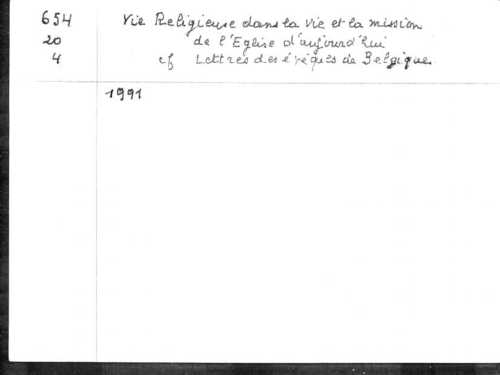 654 Vie Religieuse dans la vie et la mission
20 de l'Eglise d'aujourd'hui
4 cf Lettres des évêques de Belgique
1991